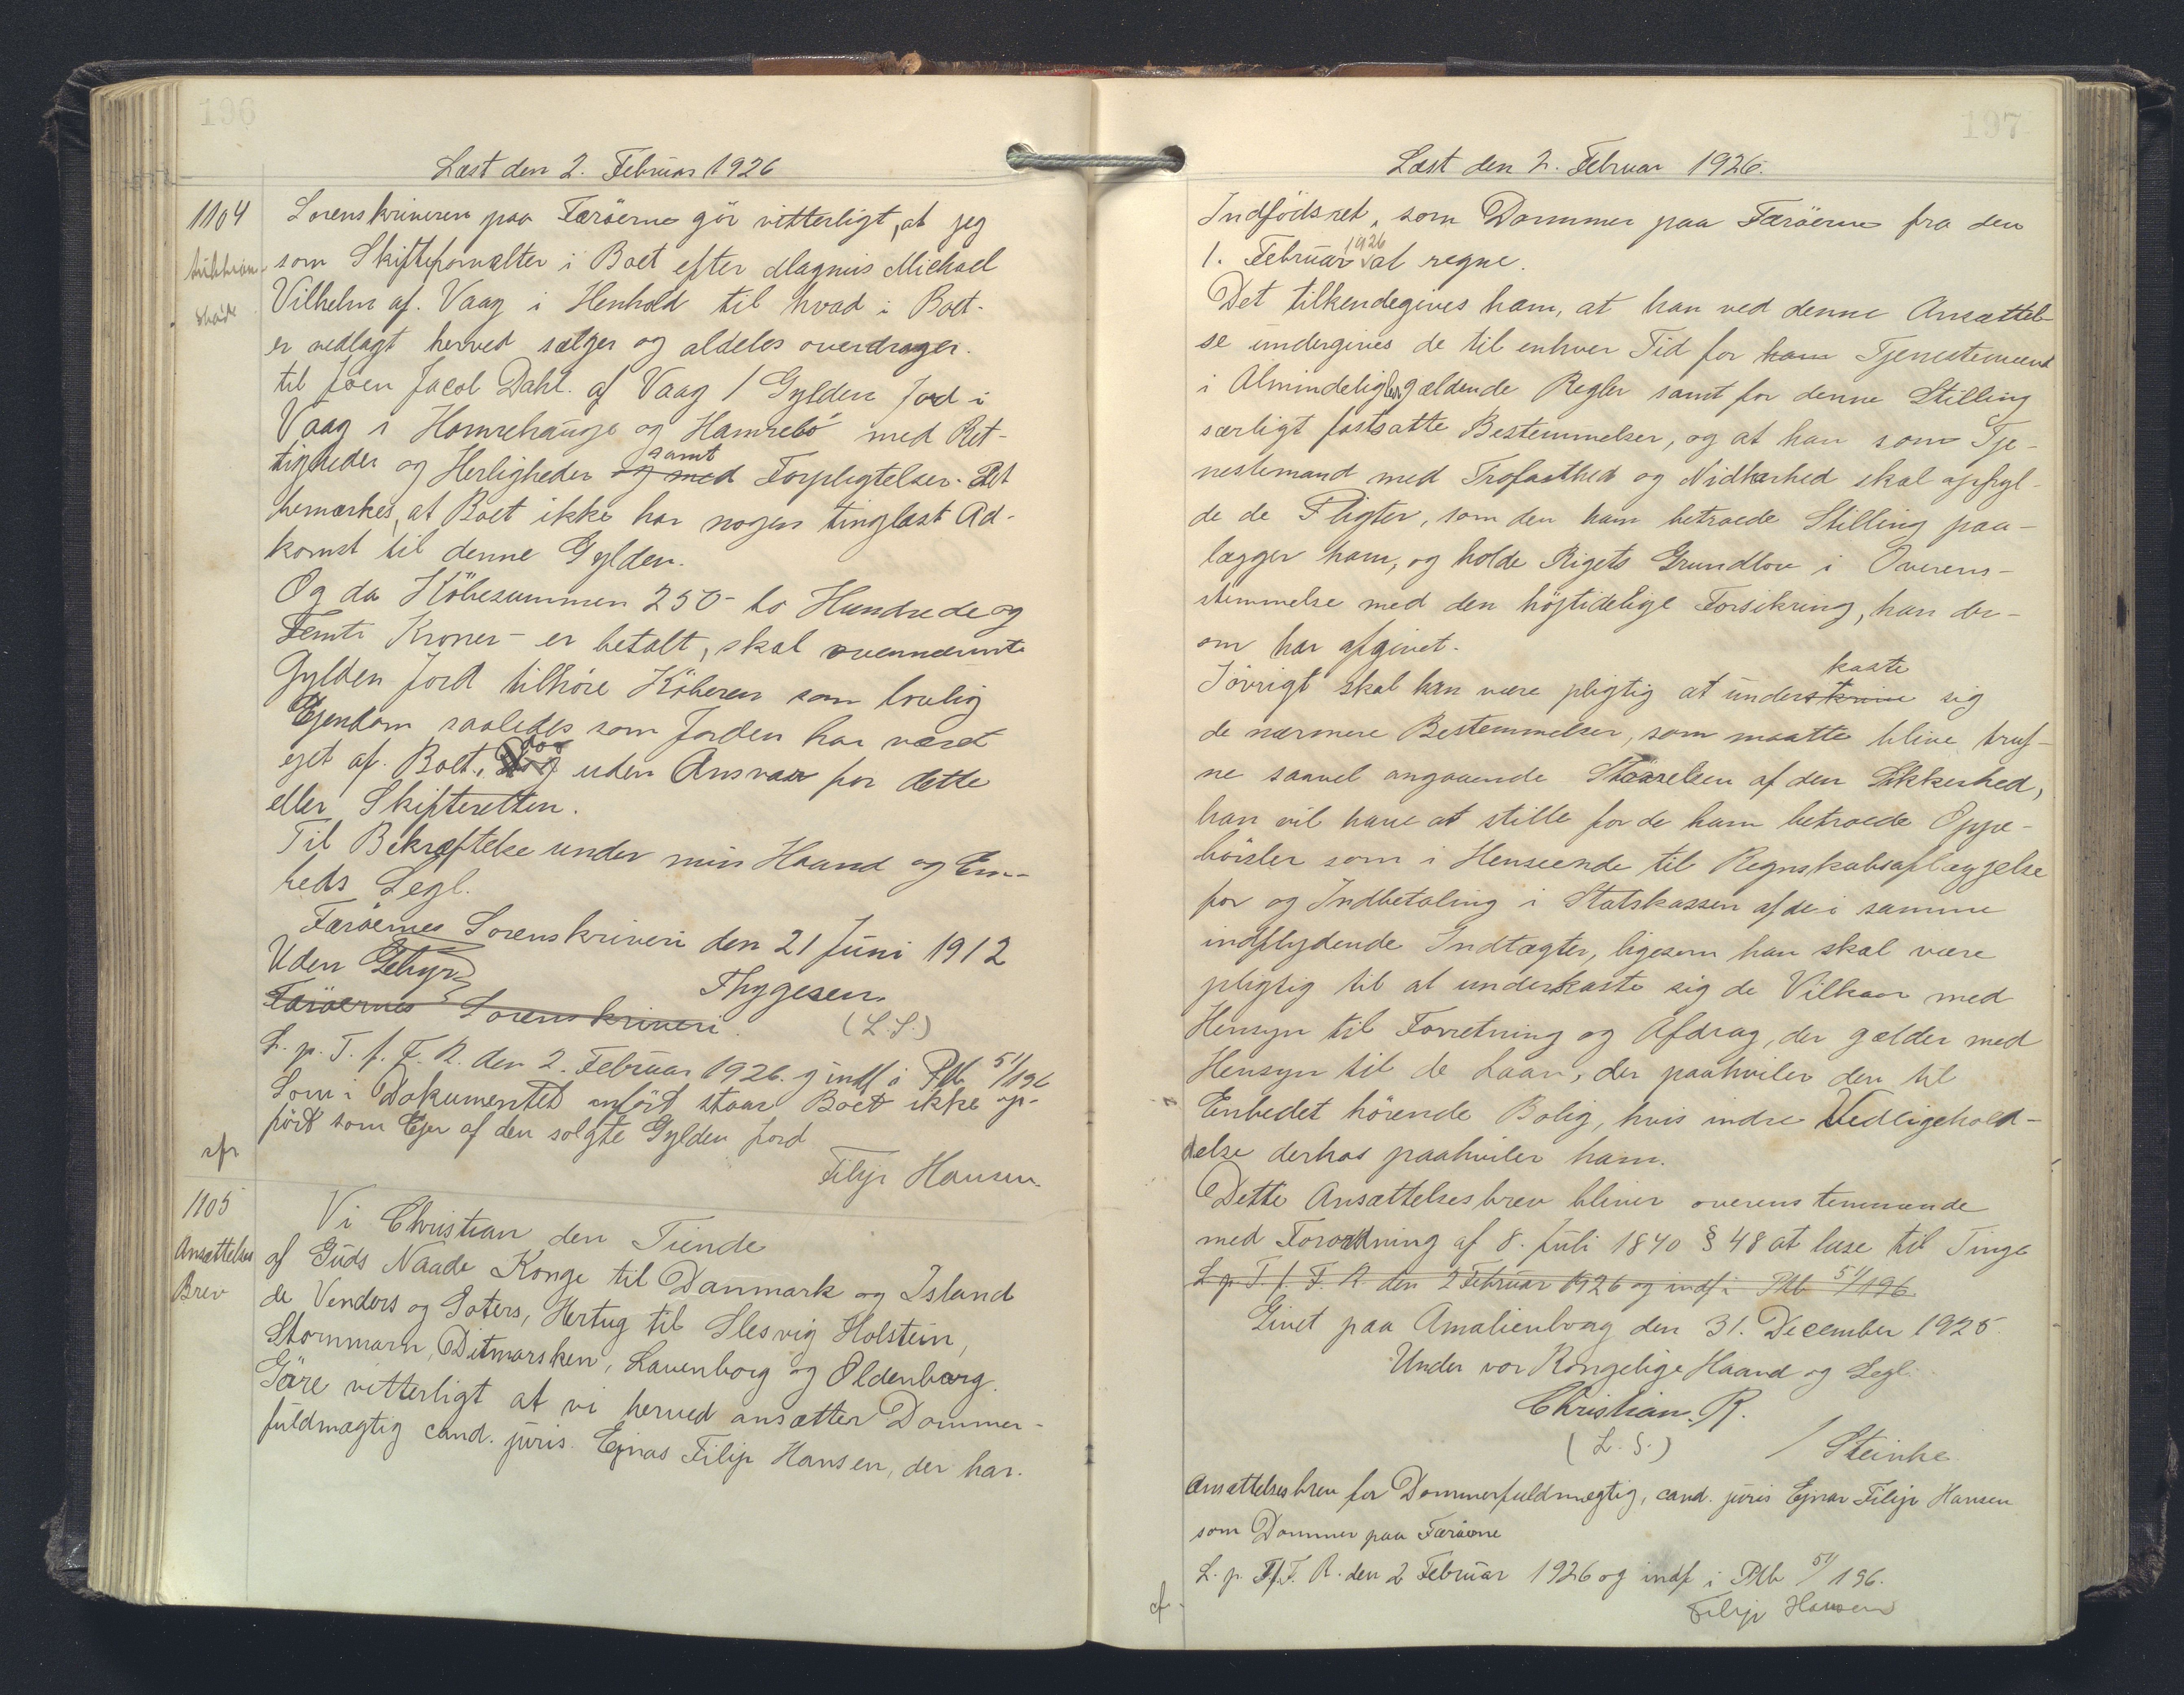 196
Læst den 2. Februar 1926
1104
Skøde
Sorenskriveren paa Færöerne gör vitterligt, at jeg
som Skifteforvalter i Boet efter Magnus Michael
Vilhelm af. Vaag i Henhold til hvad i Boet.
er vedlagt herved sælger og aldeles overdrager.
til Joen Jacob Dahl. af Vaag 1 Gylden Jord i
Vaag i Homrehauge og Hamrebö med Ret-
tigheder og Herligheder og med samt Forpligtelser. Det
bemærkes, at Boet ikke har nogen tinglæst Ad-
komst til denne Gylden.
Og da Köbesummen 250- to Hundrede og
Femti Kroner - er betalt, skal ovennævnte
Gylden Jord tilhöre Köberen som lovlig
Ejendom saaledes som Jorden har været
ejet af. Boet, dog uden Ansvar for dette
eller Skifteretten.
Til Bekræftelse under min Haand og Em-
beds Segl.
Færöernes Sorenskriveri den 21 Juni 1912
Uden Gebyr
Thygesen.
Færöernes Sorenskriveri.
(L.S.)
L. p. T. f. F. R. den 2. Februar 1926. og indf i Ptb 51/196
Som i Dokumentet anfört staar Boet ikke op-
fört som Ejer af den solgte Gylden Jord
Filip Hansen.
1105
Ansættelses
Brev
Vi Christian den Tiende
af Guds Naade Konge til Danmark og Island
de Venders og Goters, Hertug til Slesvig Holstein,
Stormarn, Ditmarsken, Lauenborg og Oldenborg.
Göre vitterligt at vi herved ansætter Dommer-
fuldmægtig cand. juris. Ejnar Filip Hansen, der har.
197
Læst den 2. Februar 1926.
Indfödsret, som Dommer paa Færöerne fra den
1. Februar 1926 at regne.
Det tilkendegives ham, at han ved denne Ansættel-
se undergives de til enhver Tid for ham Tjenestemænd
i Almindelighed gældende Regler samt for denne Stilling
særligt fastsatte Bestemmelser, og at han som Tje-
nestemand med Trofasthed og Nidkærhed skal opfyl-
de de Pligter, som den ham betroede Stilling paa-
lægger ham, og holde Rigets Grundlov i Overens-
stemmelse med den höjtidelige Forsikring, han der-
om har afgivet.
Iövrigt skal han være pligtig at underskrive kaste sig
de nærmere Bestemmelser, som maatte blive truf-
ne saavel angaaende Störrelsen af den Sikkerhed,
han vil have at stille for de ham betroede Oppe-
börsler som i Henseende til Regnskabsaflæggelse
for og Indbetaling i Statskassen af de i samme
indflydende Indtægter, ligesom han skal være
pligtig til at underkaste sig de Vilkaar med
Hensyn til Forretning og Afdrag, der gælder med
Hensyn til de Laan, der paahviler den til
Embedet hörende Bolig, hvis indre Vedligehold-
delse derhos paahviler ham.
Dette Ansættelsesbrev bliver overensstemmende
med Forordning af 8. Juli 1840 § 48 at læse til Tinge
L. p. T. f. F. R. den 2 Februar 1926 og indf i Ptb 51/196.
Givet paa Amalienborg den 31. December 1925.
Under vor Kongelige Haand og Segl.
Christian. R.
(L. S.)
/ Steincke
Ansættelsesbrev for Dommerfuldmægtig, cand. juris Ejnar Filip Hansen
som Dommer paa Færöerne
L. p. T. f. F. R. den 2 Februar 1926 og indf i Ptb 51/196.
Filip Hansen